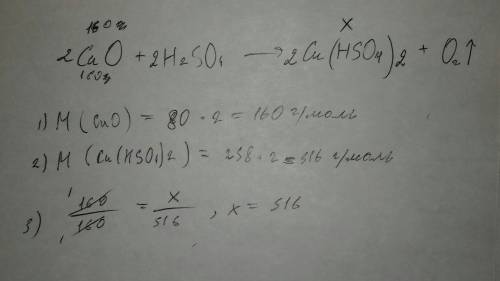 160 г x
2CuO + 2H2SO4 → 2Cu(HSO4)2 + O2↑
160г
1) M (CuO) = 80 · 2 = 160 г/моль
2) M (Cu(HSO4)2) = 258 · 2 = 516 г/моль
3) 160/160 = x/516 , x = 516